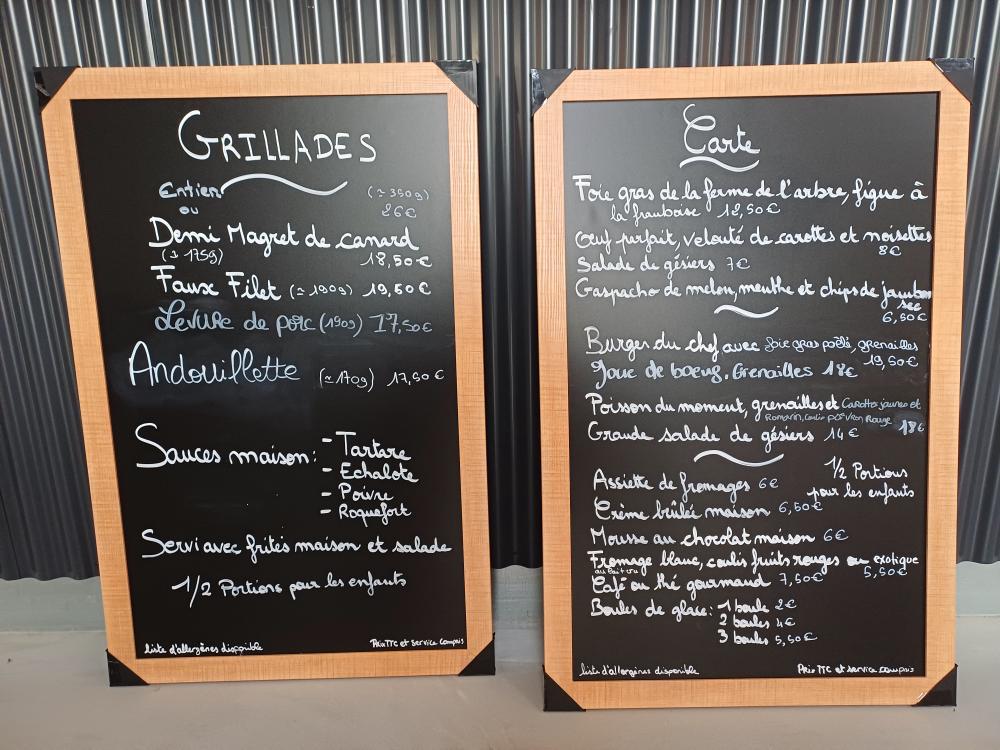 GRILLADES
Entier (≃ 350g)
ou 26€
Demi Magret de canard
(± 175g) 18,50€
Faux Filet (≃ 190g) 19,50€
Levure de porc (190g) 17,50€
Andouillette (≃170g) 17,50€
Sauces maison: - Tartare
- Echalote
- Poivre
- Roquefort
Servi avec frites maison et salade
1/2 Portions pour les enfants
liste d'allergènes disponible Prix TTC et service compris
Carte
Foie gras de la ferme de l'arbre, figue à
la framboise 12,50€
Œuf parfait, velouté de carottes et noisettes
8€
Salade de gésiers 7€
Gaspacho de melon, menthe et chips de jambon
sec
6,50€
Burger du chef avec foie gras poêlé, grenailles
19,50€
Joue de boeuf. Grenailles 18€
Poisson du moment, grenailles et Carottes jaunes et
Romarin, coulis poivron Rouge 18€
Grande salade de gésiers 14€
Assiette de fromages 6€
1/2 Portions
pour les enfants
Crème brûlée maison 6,50€
Mousse au chocolat maison 6€
Fromage blanc, coulis fruits rouges ou exotique
5,50€
Café ou thé gourmand 7,50€
Boules de glace: 1 boule 2€
2 boules 4€
3 boules 5,50€
liste d'allergènes disponible Prix TTC et service compris